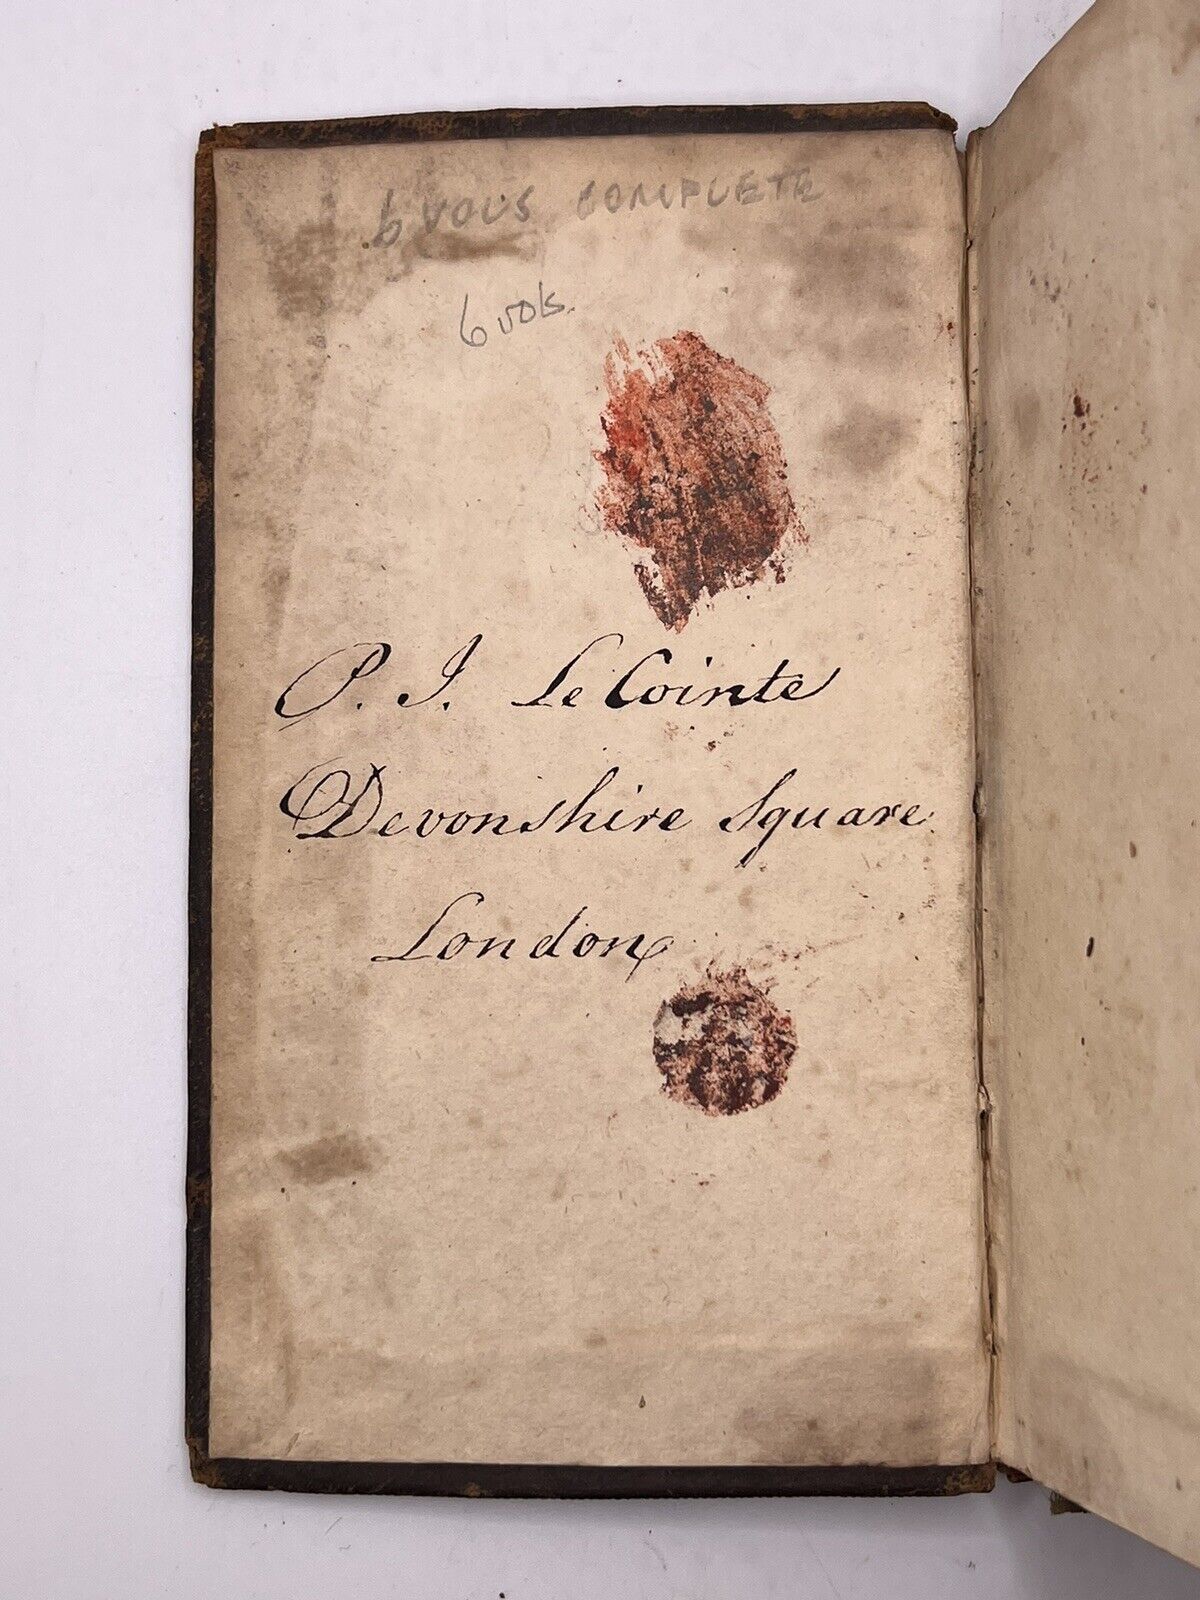 6 VOLS COMPLETE
6 vols.
P. J. Le Cointe
Devonshire Square
London